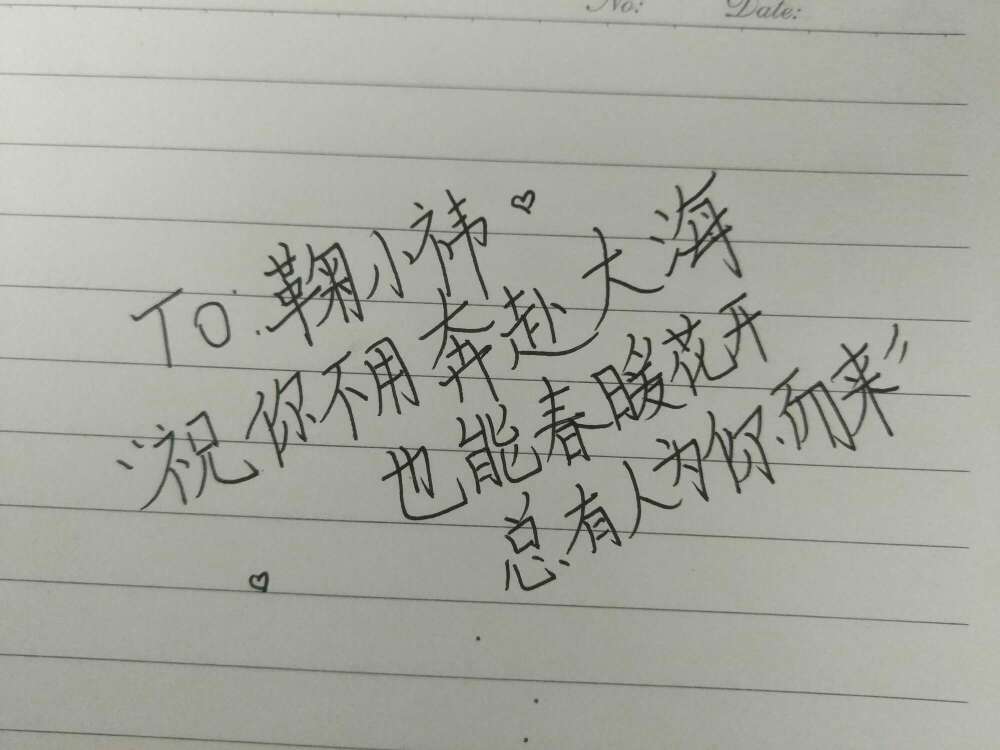 No: Date:
To:鞠小祎
"祝你不用奔赴大海
也能春暖花开
总有人为你而来"